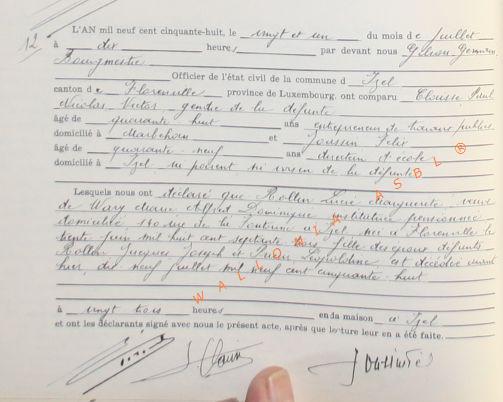 12
L'AN mil neuf cent cinquante-huit, le vingt et un du mois de juillet
à dix heures par devant nous
Bourgmestre
Officier de l'état civil de la commune d Izel
canton de Florenville province de Luxembourg, ont comparu Clousse Paul
Nicolas Victor gendre de la défunte
âgé de quarante huit ans entrepreneur de travaux publics
domicilié à Marbehan et Joussin Félix
âgé de quarante-neuf ans directeur d'école
domicilié à Izel ni parent ni voisin de la défunte
Lesquels nous ont déclaré que Rollin Lucie Marguerite, veuve
de Wavy Marie Alfred Dominique institutrice pensionnée
domiciliée, rue de la Fontaine à Izel, née à Florenville le
trente juin mil huit cent septante fille des époux défunts
Rollin Jacques Joseph et Léopoldine est décédée avant
hier, dix neuf juillet mil neuf cent cinquante-huit
à vingt trois heures en sa maison à Izel
et ont les déclarants signé avec nous le présent acte, après que lecture leur en a été faite.
WALLONIA ASBL ®